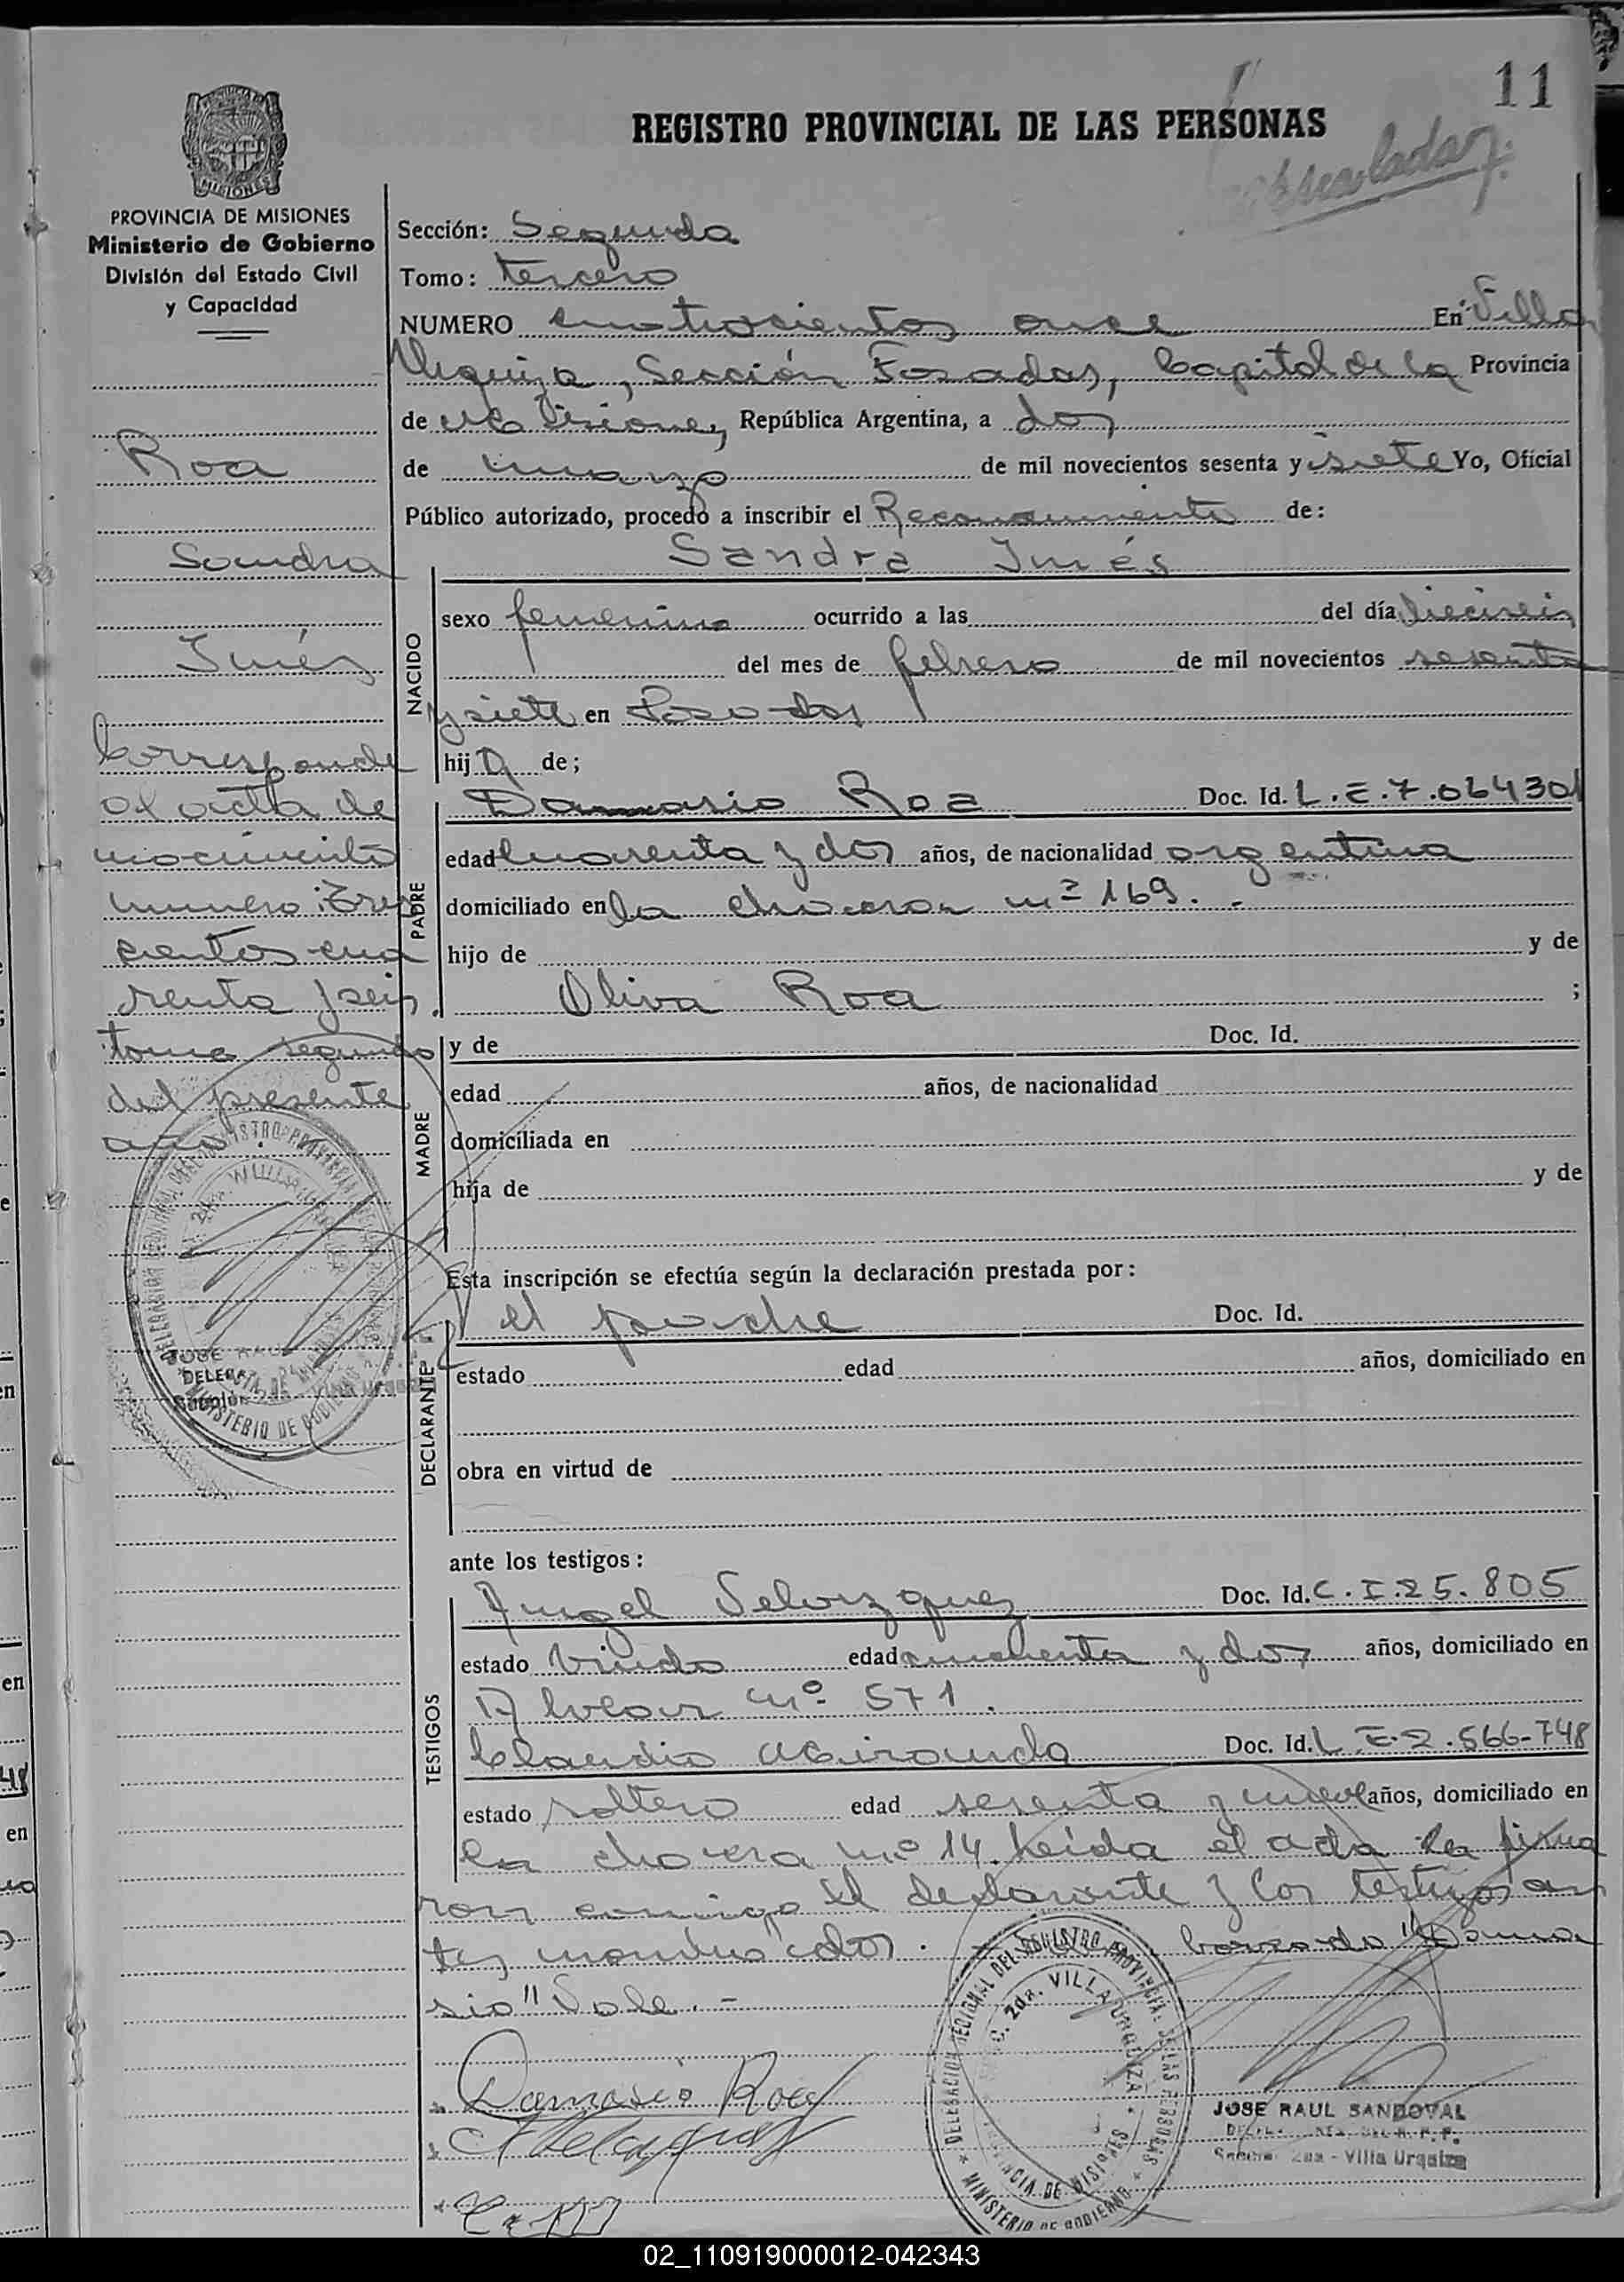 11
REGISTRO PROVINCIAL DE LAS PERSONAS
PROVINCIA DE MISIONES
Ministerio de Gobierno
División del Estado Civil
y Capacidad
Roa
Sandra
Inés
Corresponde
al acta de
nacimiento
numero: Tres
cientos cua
renta y seis
tomo segundo
del presente
año.
Sección: Segunda
Tomo: tercero
NUMERO cuatrocientos once En Villa
Urquiza, Sección Posadas, Capital de la Provincia
de Misiones, República Argentina, a dos
de marzo de mil novecientos sesenta y siete Yo, Oficial
Público autorizado, procedo a inscribir el Reconocimiento de:
Sandra Inés
NACIDO
sexo femenino ocurrido a las del día dieciseis
del mes de febrero de mil novecientos sesenta
y siete en Posadas
hija de;
PADRE
Damasio Roa Doc. Id. L.E.7.064301
edad cuarenta y dos años, de nacionalidad argentina
domiciliado en la chacra nº 169.-
hijo de y de
Oliva Roa ;
MADRE
y de Doc. Id.
edad años, de nacionalidad
domiciliada en
hija de y de
Esta inscripción se efectúa según la declaración prestada por:
DECLARANTE
el padre Doc. Id.
estado edad años, domiciliado en
obra en virtud de
ante los testigos:
TESTIGOS
Angel Velazquez Doc. Id. C.I.25.805
estado Viudo edad cincuenta y dos años, domiciliado en
Alvear nº 571.
Claudio Miranda Doc. Id. L.E.2.566-748
estado soltero edad sesenta y nueve años, domiciliado en
la chacra nº 14. Leída el acta la firma
ron conmigo el declarante y los testigos an
tes nombrados. borrado "Dama
sio" Vale.-
Damasio Roa
DELEGACION REGIONAL DEL REGISTRO PROVINCIAL DE LAS PERSONAS
SECC. 2da. VILLA URQUIZA
PROVINCIA DE MISIONES
MINISTERIO DE GOBIERNO
JOSE RAUL SANDOVAL
Villa Urquiza
02_110919000012-042343